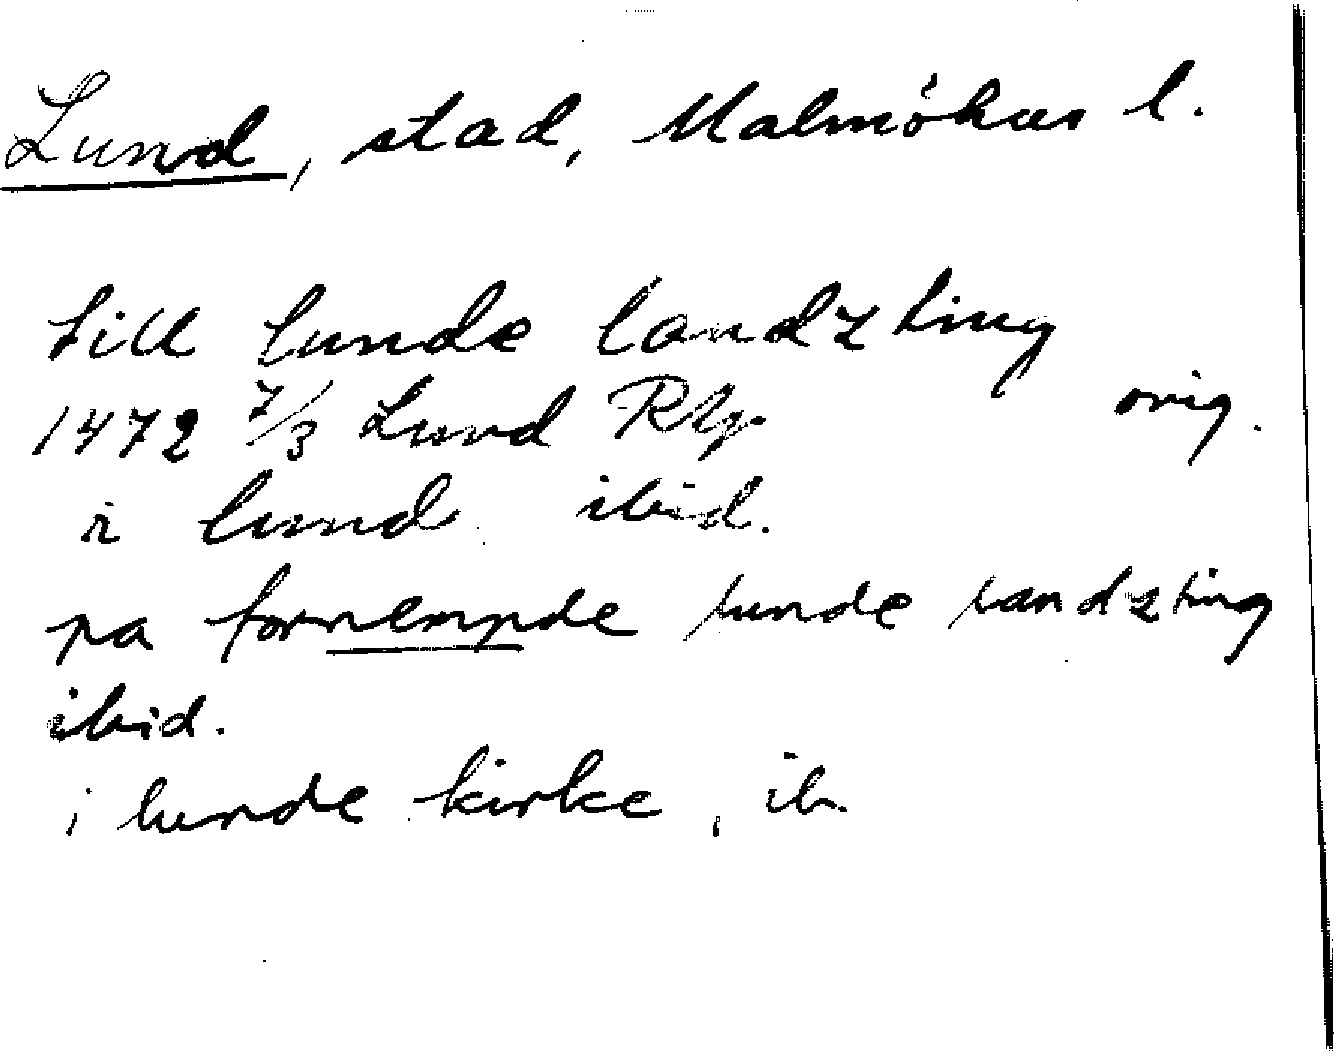 Lund, stad, Malmöhus l.
till lunde landz ting
1472 7/3 Lund Rhp orig.
i lund ibid.
pa fornempde lunde landz ting
ibid.
i lunde kirke, ib